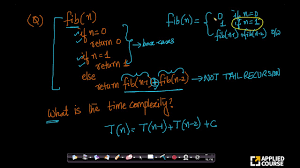 (Q) fib(n)
if n=0
return 0
if n=1
return 1
→ base-cases
else
return fib(n-1)+fib(n-2) → NOT TAIL RECURSION
fib(n) = { 0 if n=0
1 if n=1
fib(n-1)+fib(n-2) o/w
What is the time complexity?
T(n) = T(n-1)+T(n-2) + C
APPLIED
COURSE